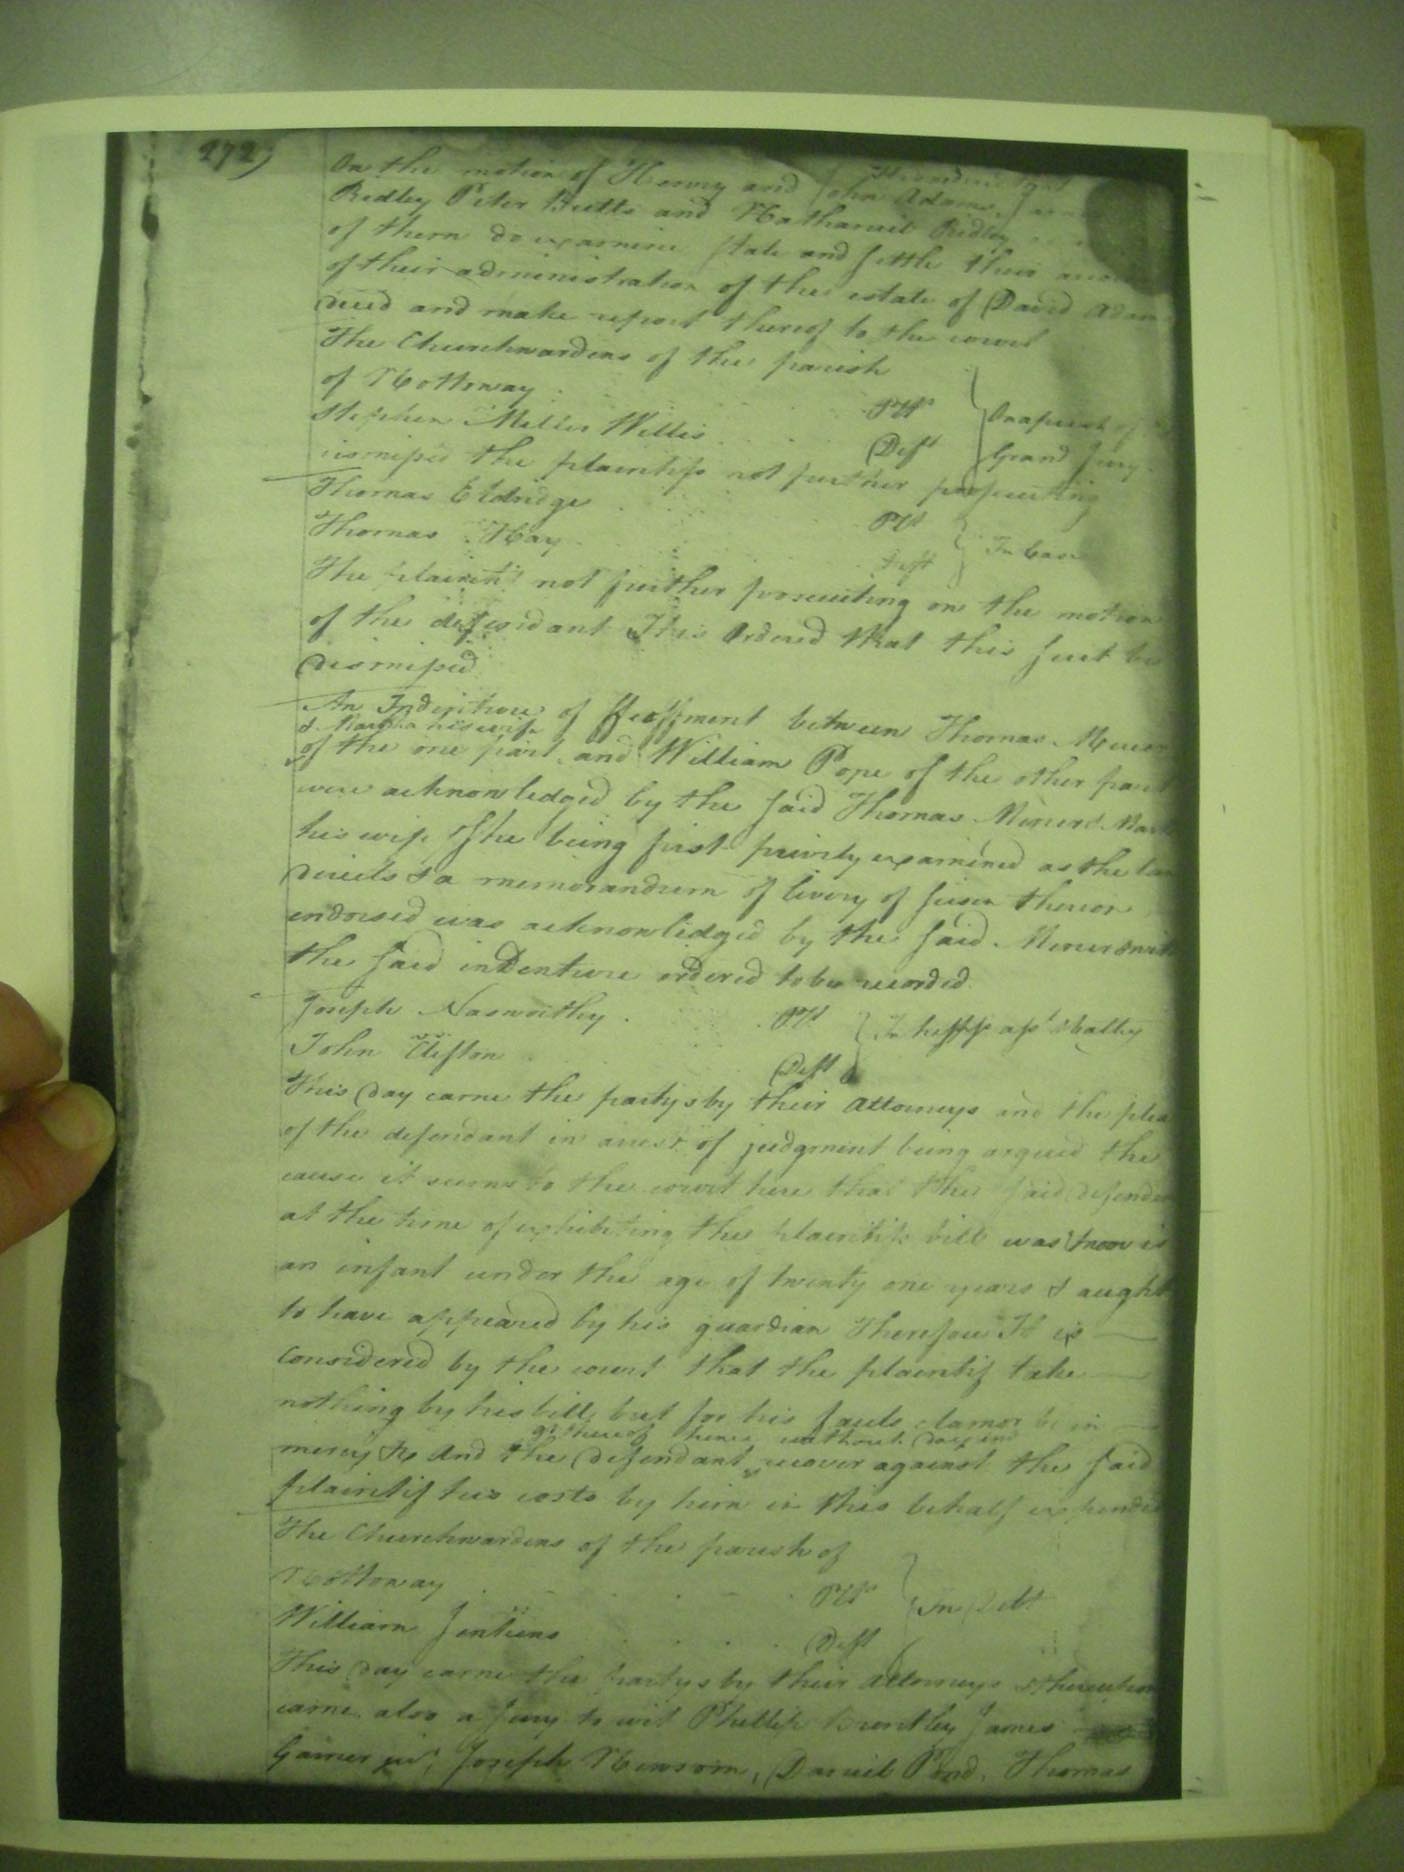 272)
On the motion of Henry and John Adams, James
Ridley Peter Butts and Nathaniel Ridley
of them do examine state and settle their
of their administration of the estate of David Adam
deced and make report thereof to the court
The Churchwardens of the parish
of Nottoway Plts
Stephen Miller Willis Deft
On a presentmt of
Grand Jury
dismissed the plaintifs not further prosecuting
Thomas Eldridge Plt
Thomas Hay Deft
In Case
The plaintif not further prosecuting on the motion
of the defendant It is Ordered that this suit be
dismissed
An Indenture of Feoffment between Thomas
& Martha his wife
of the one part and William Pope of the other part
were acknowledged by the said Thomas
his wife she being first privily examined as the law
directs & a memorandum of livery of seisen thereon
endorsed was acknowledged by the said
the said indenture ordered to be recorded
Joseph Nasworthy Plt
John Clifton Deft
In
This day came the partys by their attorneys and the plea
of the defendant in arrest of judgment being argued the
cause it seems to the court here that the said defendt
at the time of exhibiting the plaintifs bill was & now is
an infant under the age of twenty one years & aught
to have appeared by his guardian Therefore It is
considered by the court that the plaintif take
nothing by his bill but for his fals clamor be in
go thereof hence without day and
mercy &c And the defendant recover against the said
plaintif his costs by him in this behalf expended
The Churchwardens of the parish of
Nottoway Plts
William Jenkins Deft
In Debt
This day came the partys by their attorneys & thereupon
came also a Jury to wit Phillip Brantley James
Garner junr, Joseph Newsom, Daniel Pond, Thomas